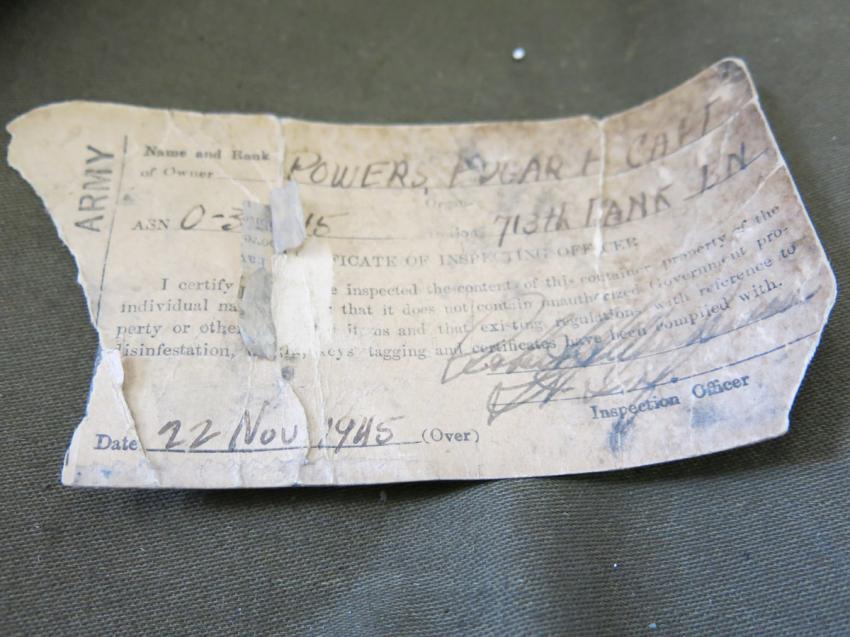 ARMY
Name and Rank
of Owner POWERS, EDGAR F CAPT
ASN O-3 15 713th TANK BN
FICATE OF INSPECTING OFFICER
I certify inspected the contents of this container property of the
individual that it does not contain unauthorized Government pro-
perty or other items and that existing regulations with reference to
disinfestation, tagging and certificates have been complied with.
Inspection Officer
Date 22 Nov 1945 (Over)